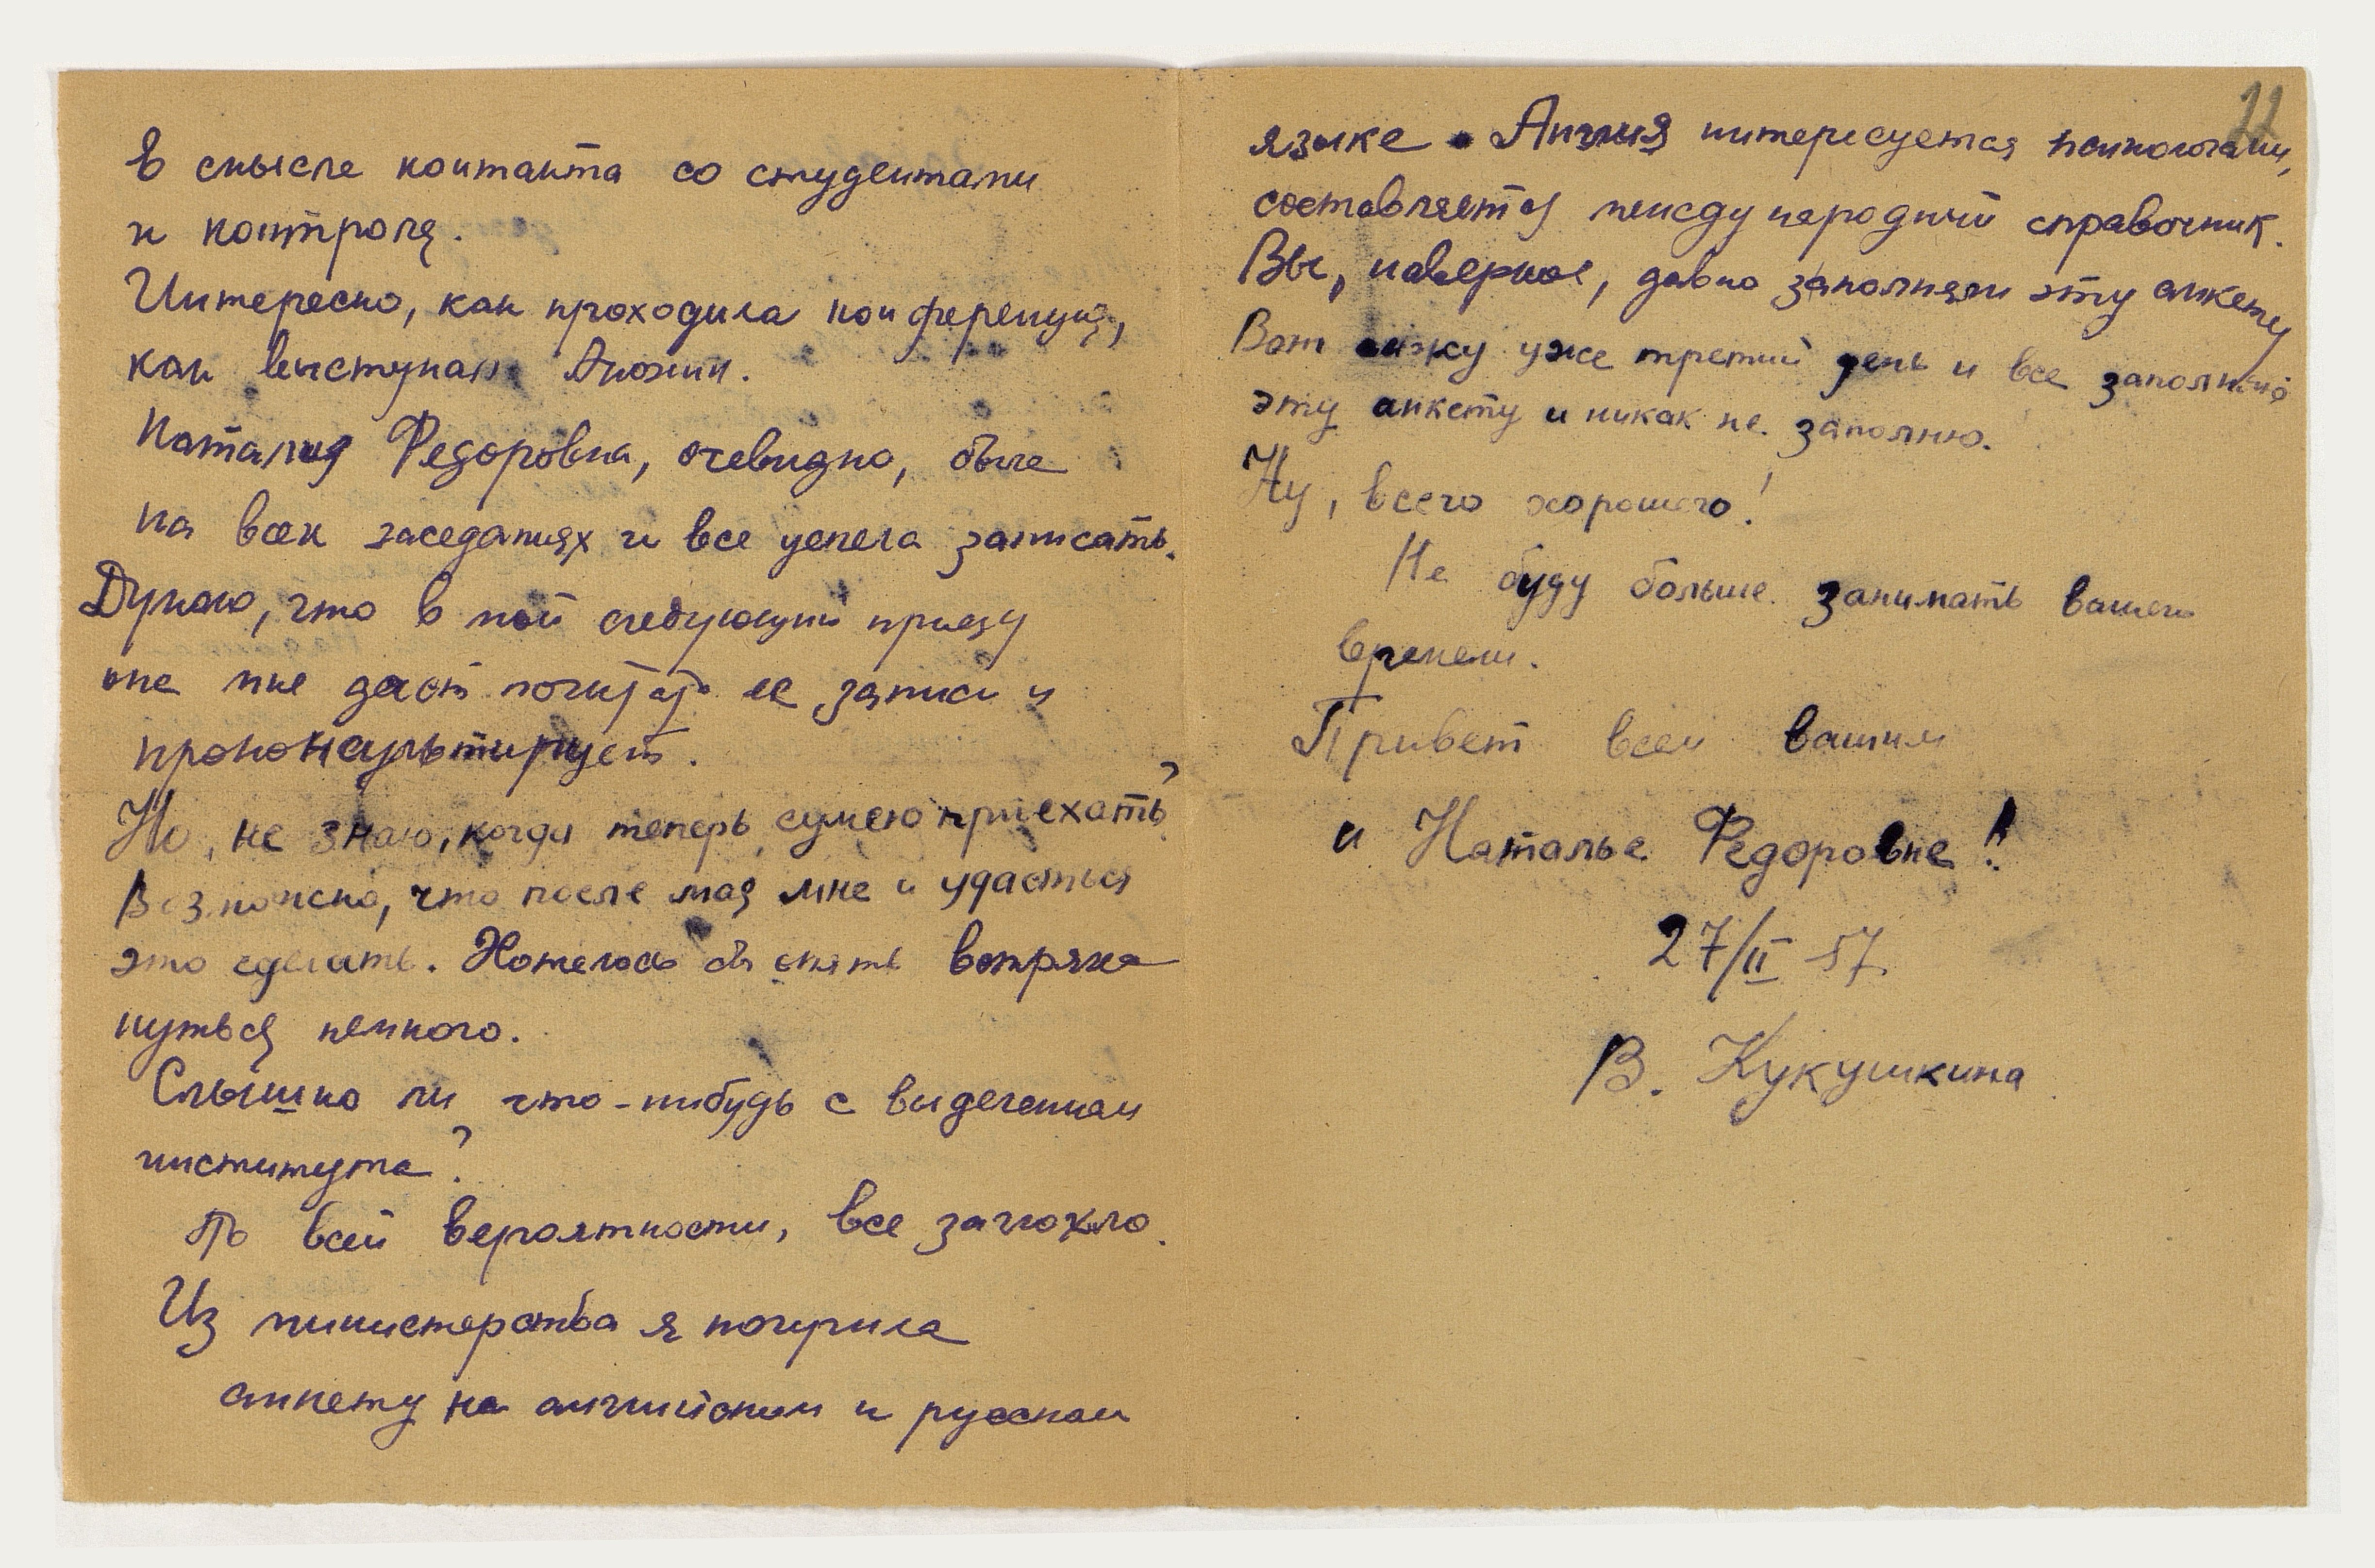 в смысле контакта со студентами
и контроля.
Интересно, как проходила конференция,
как выступал Анохин.
Наталия Федоровна, очевидно, была
на всех заседаниях и все успела записать.
Думаю, что в мой следующий приезд
она мне даст почитать ее записи и
проконсультирует.
Но, не знаю, когда теперь сумею приехать?
Возможно, что после мая мне и удастся
это сделать. Хотелось бы опять встряхе
нуться немного.
Слышно ли что-нибудь с выделением
института?
По всей вероятности, все заглохло.
Из министерства я получила
анкету на английском и русском
22
языке. Англия интересуется психологами,
составляется международный справочник.
Вы, наверное, давно заполняли эту анкету
Вот сижу уже третий день и все заполняю
эту анкету и никак не заполню.
Ну, всего хорошего!
Не буду больше занимать вашего
времени.
Привет всем вашим
и Наталье Федоровне!!
27/II 57.
В. Кукушкина